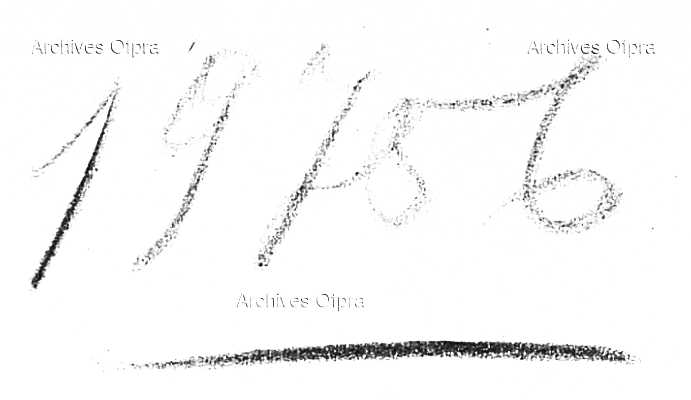 Archives Ofpra Archives Ofpra
19756
Archives Ofpra